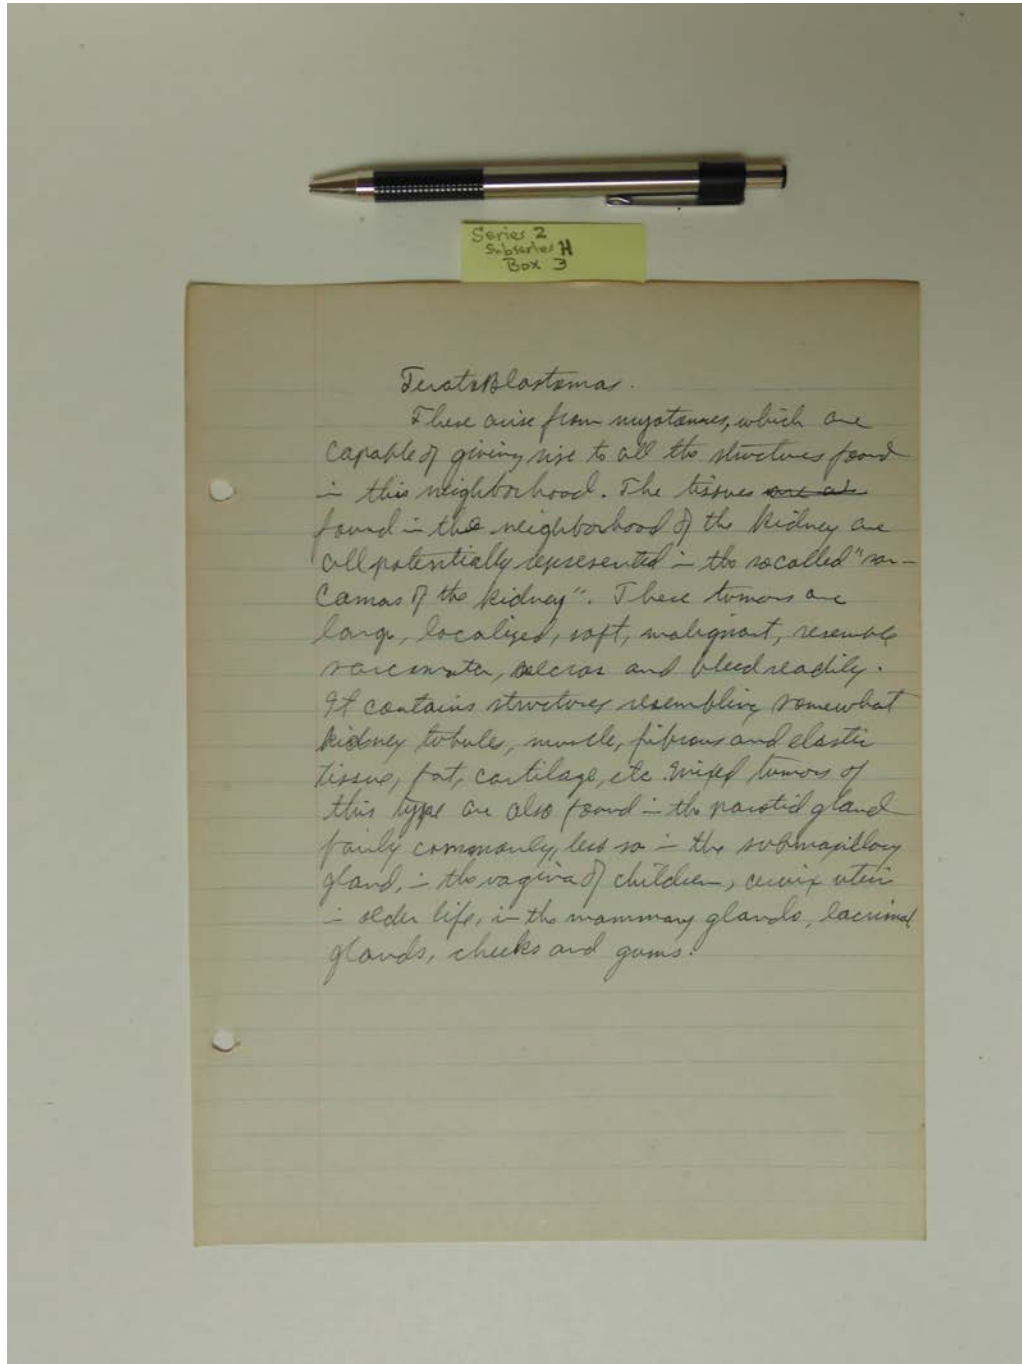 Series 2
Subseries H
Box 3
TeratoBlastomas.
These arise from myotomes, which are
capable of giving rise to all the structures found
in this neighborhood. The tissues
found in the neighborhood of the kidney are
all potentially represented in the socalled "sar-
comas of the kidney". These tumors are
large, localized, soft, malignant, resemble
sarcomata, and bleed readily.
It contains structures resembling somewhat
kidney tubules, muscle, fibrous and elastic
tissue, fat, cartilage, etc. Mixed tumors of
this type are also found in the parotid gland
fairly commonly, less so in the submaxillary
gland, in the vagina of children, cervix uteri
in older life, in the mammary glands, lacrimal
glands, cheeks and gums.